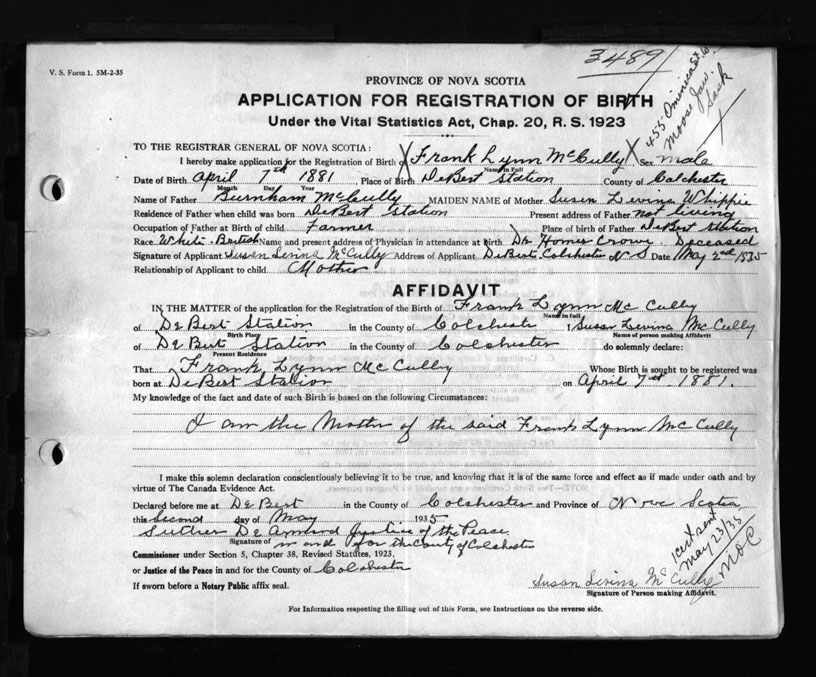 3489
V. S. Form 1. 5M-2-35
455 Ominica St. W.
Moose Jaw
Sask
PROVINCE OF NOVA SCOTIA
APPLICATION FOR REGISTRATION OF BIRTH
Under the Vital Statistics Act, Chap. 20, R. S. 1923
TO THE REGISTRAR GENERAL OF NOVA SCOTIA:
I hereby make application for the Registration of Birth of Frank Lynn McCully Sex male
Name in Full
Date of Birth April 7th 1881 Place of Birth DeBert Station County of Colchester
Month Day Year
Name of Father Burnham McCully MAIDEN NAME of Mother Susan Levina Whippie
Residence of Father when child was born DeBert Station Present address of Father not living
Occupation of Father at Birth of child Farmer Place of birth of Father DeBert Station
Race White British Name and present address of Physician in attendance at birth Dr Homer Crowe. Deceased
Signature of Applicant Susan Levina McCully Address of Applicant DeBert, Colchester N S Date May 2nd 1935
Relationship of Applicant to child Mother
AFFIDAVIT
IN THE MATTER of the application for the Registration of the Birth of Frank Lynn McCully
Name in full
of DeBert Station in the County of Colchester I Susan Levina McCully
Birth Place Name of person making Affidavit
of DeBert Station in the County of Colchester do solemnly declare:
Present Residence
That Frank Lynn McCully Whose Birth is sought to be registered was
born at DeBert Station on April 7th. 1881.
My knowledge of the fact and date of such Birth is based on the following Circumstances:
I am the Mother of the said Frank Lynn McCully
I make this solemn declaration conscientiously believing it to be true, and knowing that it is of the same force and effect as if made under oath and by
virtue of The Canada Evidence Act.
Declared before me at DeBert in the County of Colchester and Province of Nova Scotia
this Second day of May 1935
Justice of the Peace
Signature of in and for the County of Colchester
Commissioner under Section 5, Chapter 38, Revised Statutes, 1923,
or Justice of the Peace in and for the County of Colchester
If sworn before a Notary Public affix seal.
1 Cert sent
May 23/35
Susan Levina McCully
Signature of Person making Affidavit.
For Information respecting the filling out of this Form, see Instructions on the reverse side.